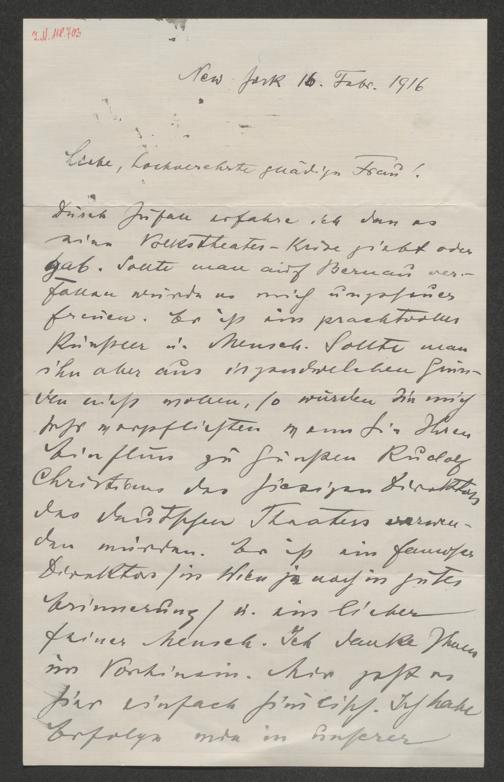 I.N. 118.703
New York 16. Febr. 1916
Liebe, hochverehrte gnädige Frau!
Durch Zufall erfahre ich dass es
eine Volkstheater-Krise giebt oder
gab. Sollte man auf Bernau ver-
fallen würde es mich ungeheuer
freuen. Er ist ein prachtvoller
Künstler u. Mensch. Sollte man
ihn aber aus irgendwelchen Grün-
den nicht wollen, so würden Sie mich
sehr verpflichten wenn Sie Ihren
Einfluss zu Gunsten Rudolf
Christians des hiesigen Direktors
des deutschen Theaters verwen-
den würden. Er ist ein famoser
Direktor / in Wien ja noch in guter
Erinnerung / u. ein lieber
feiner Mensch. Ich danke Ihnen
im Vorhinein. Mir geht es
hier einfach himmlisch. Ich habe
Erfolge wie in unserer